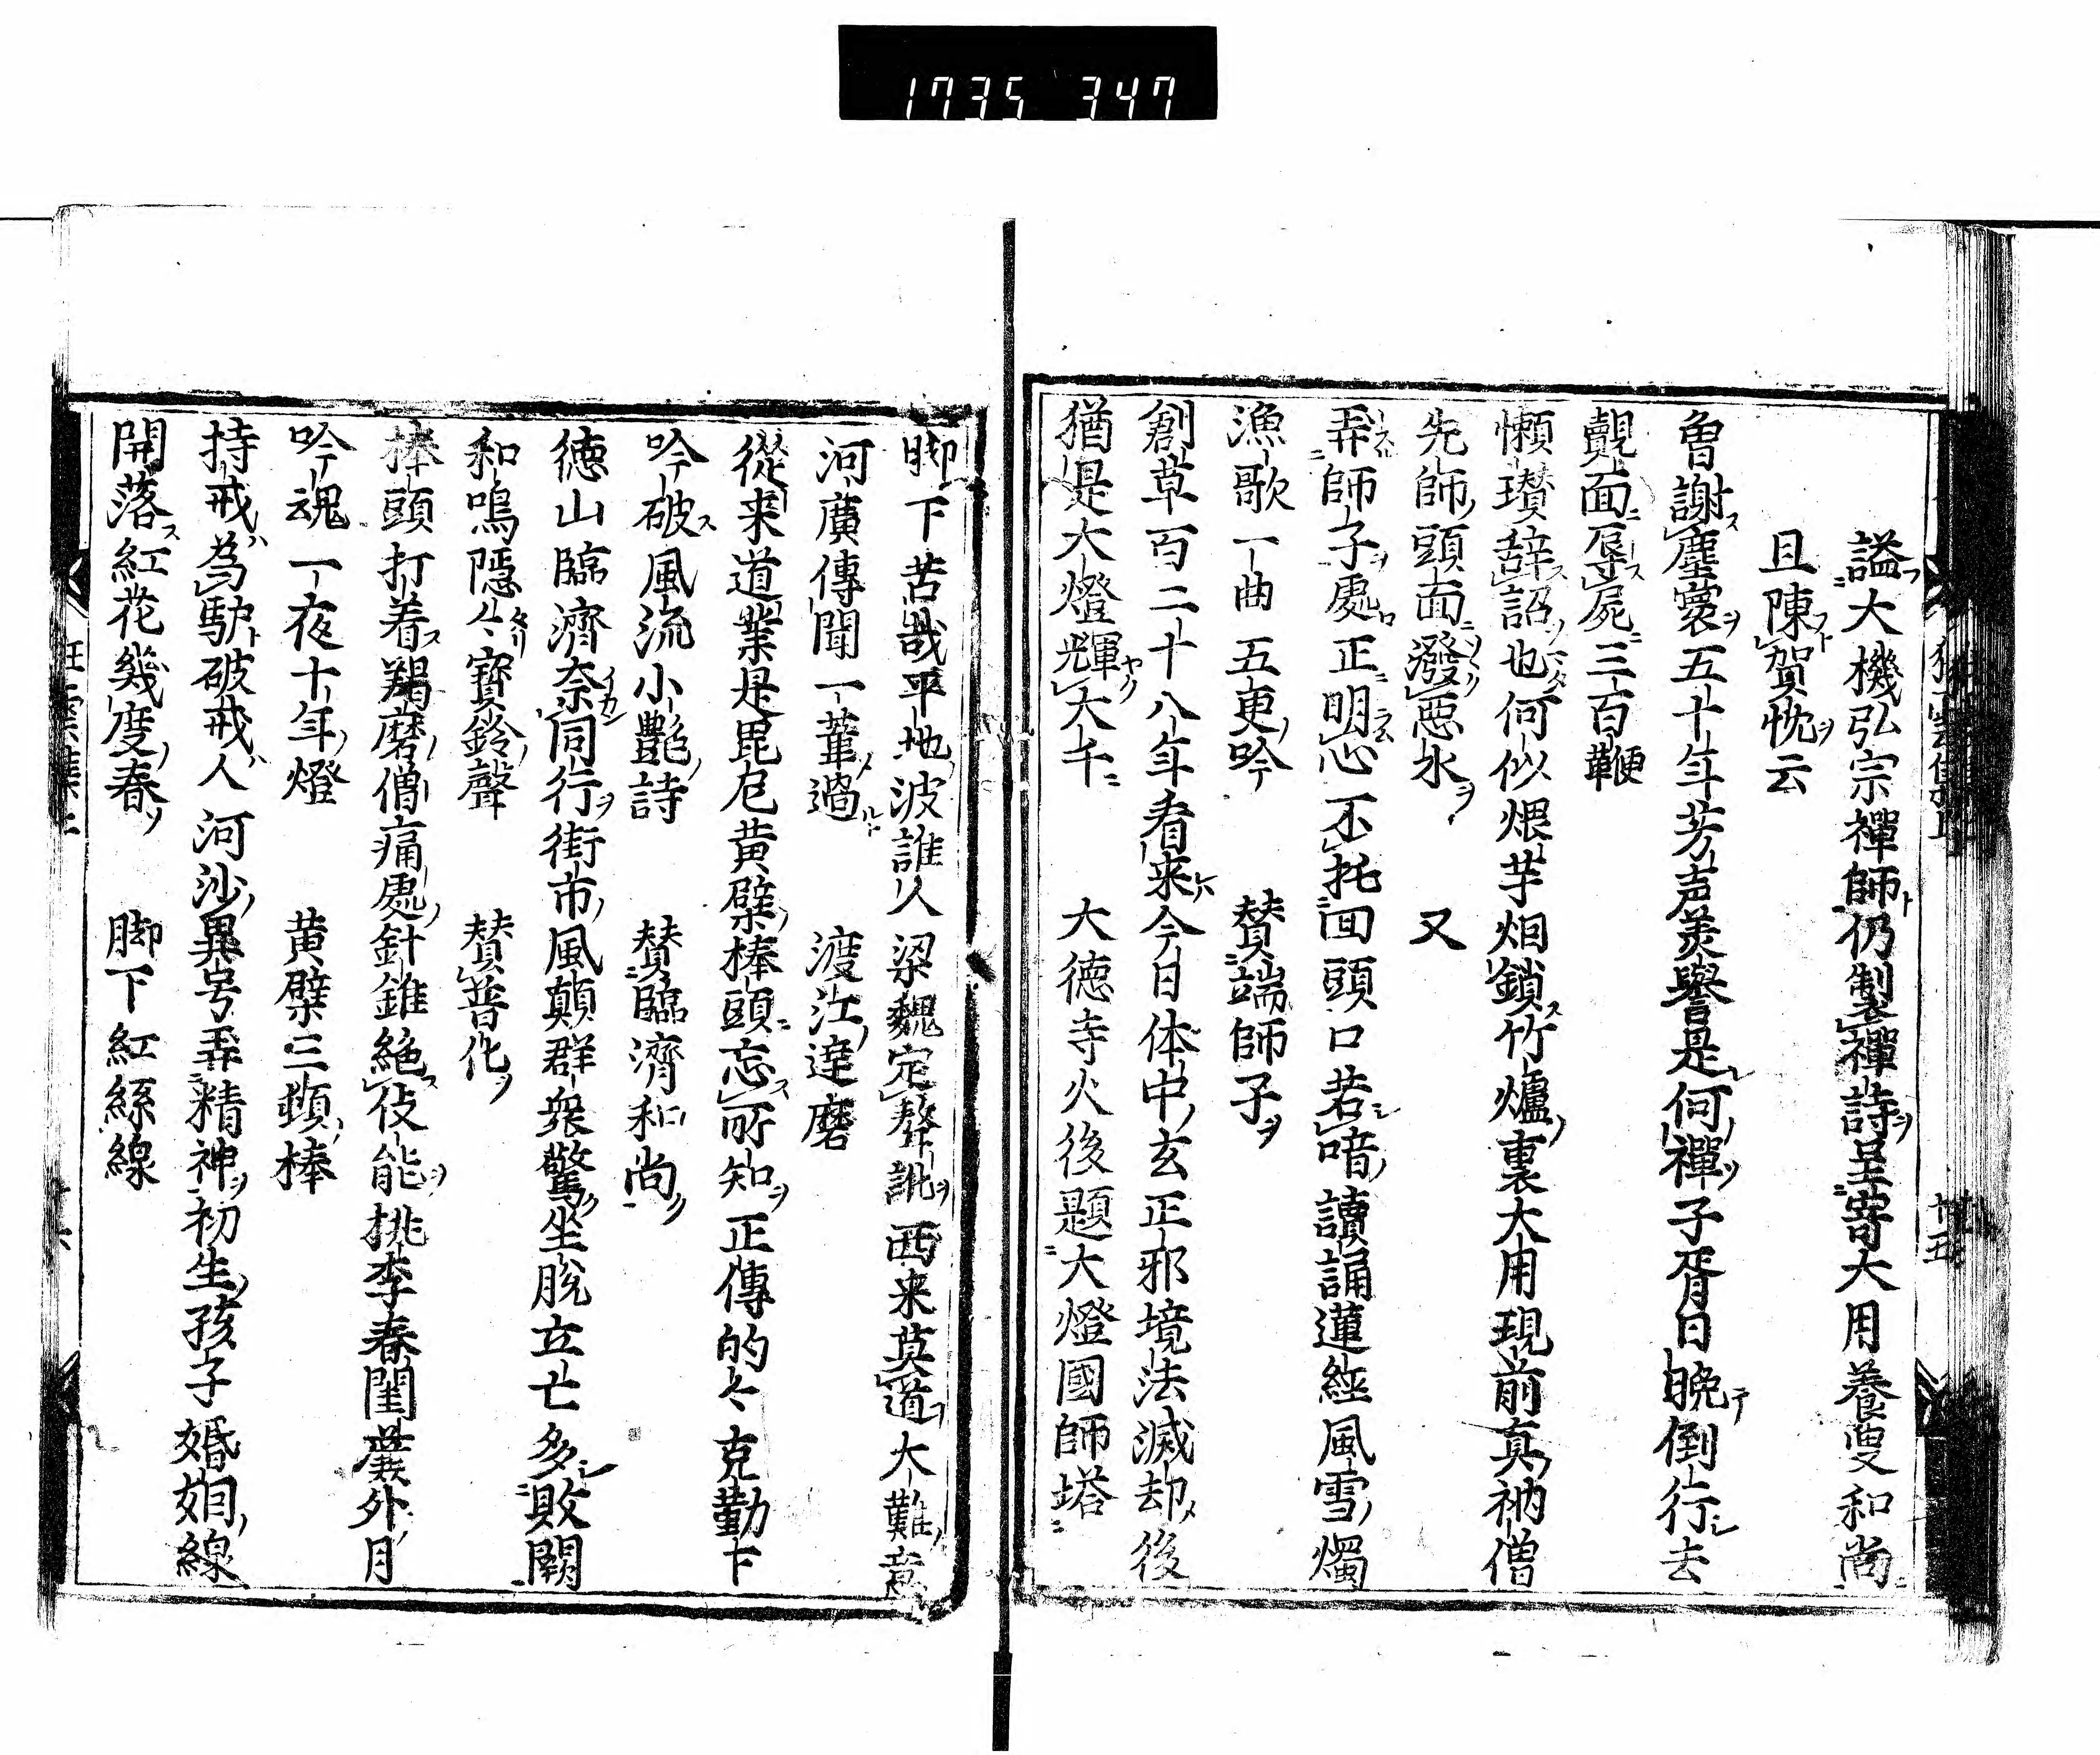 1735 347
謚大機弘宗禪師仍製禪詩呈寄大用養叟和尚
且陳賀忱云
曾謝塵寰五十年芳声美譽是何禪子胥日晩倒行去
覿面辱屍三百鞭
懶瓚辞詔也何似煨芋烟鎖竹爐裏大用現前真衲僧
先師頭面潑惡水　又
弄師子處正明心不托回頭口若喑讀誦蓮經風雪燭
漁歌一曲五更吟　賛端師子
創草百二十八年看来今日体中玄正邪境法滅却後
猶是大燈輝大千　大德寺火後題大燈國師塔
脚下苦哉平地波誰人梁魏定聱訛西来莫道大難意
河廣傳聞一葦過　渡江達磨
從来道業是毘尼黄檗棒頭忘所知正傳的々克勤下
吟破風流小艶詩　賛臨濟和尚
德山臨濟奈同行街市風顛群衆驚坐脱立亡多敗闕
和鳴隱々寳鈴聲　賛普化
棒頭打着羯磨僧痛處針錐絶伎能桃李春閨簾外月
吟魂一夜十年燈　黄檗三頓棒
持戒為馿破戒人河沙異号弄精神初生孩子婚姻線
開落紅花幾度春　脚下紅絲線